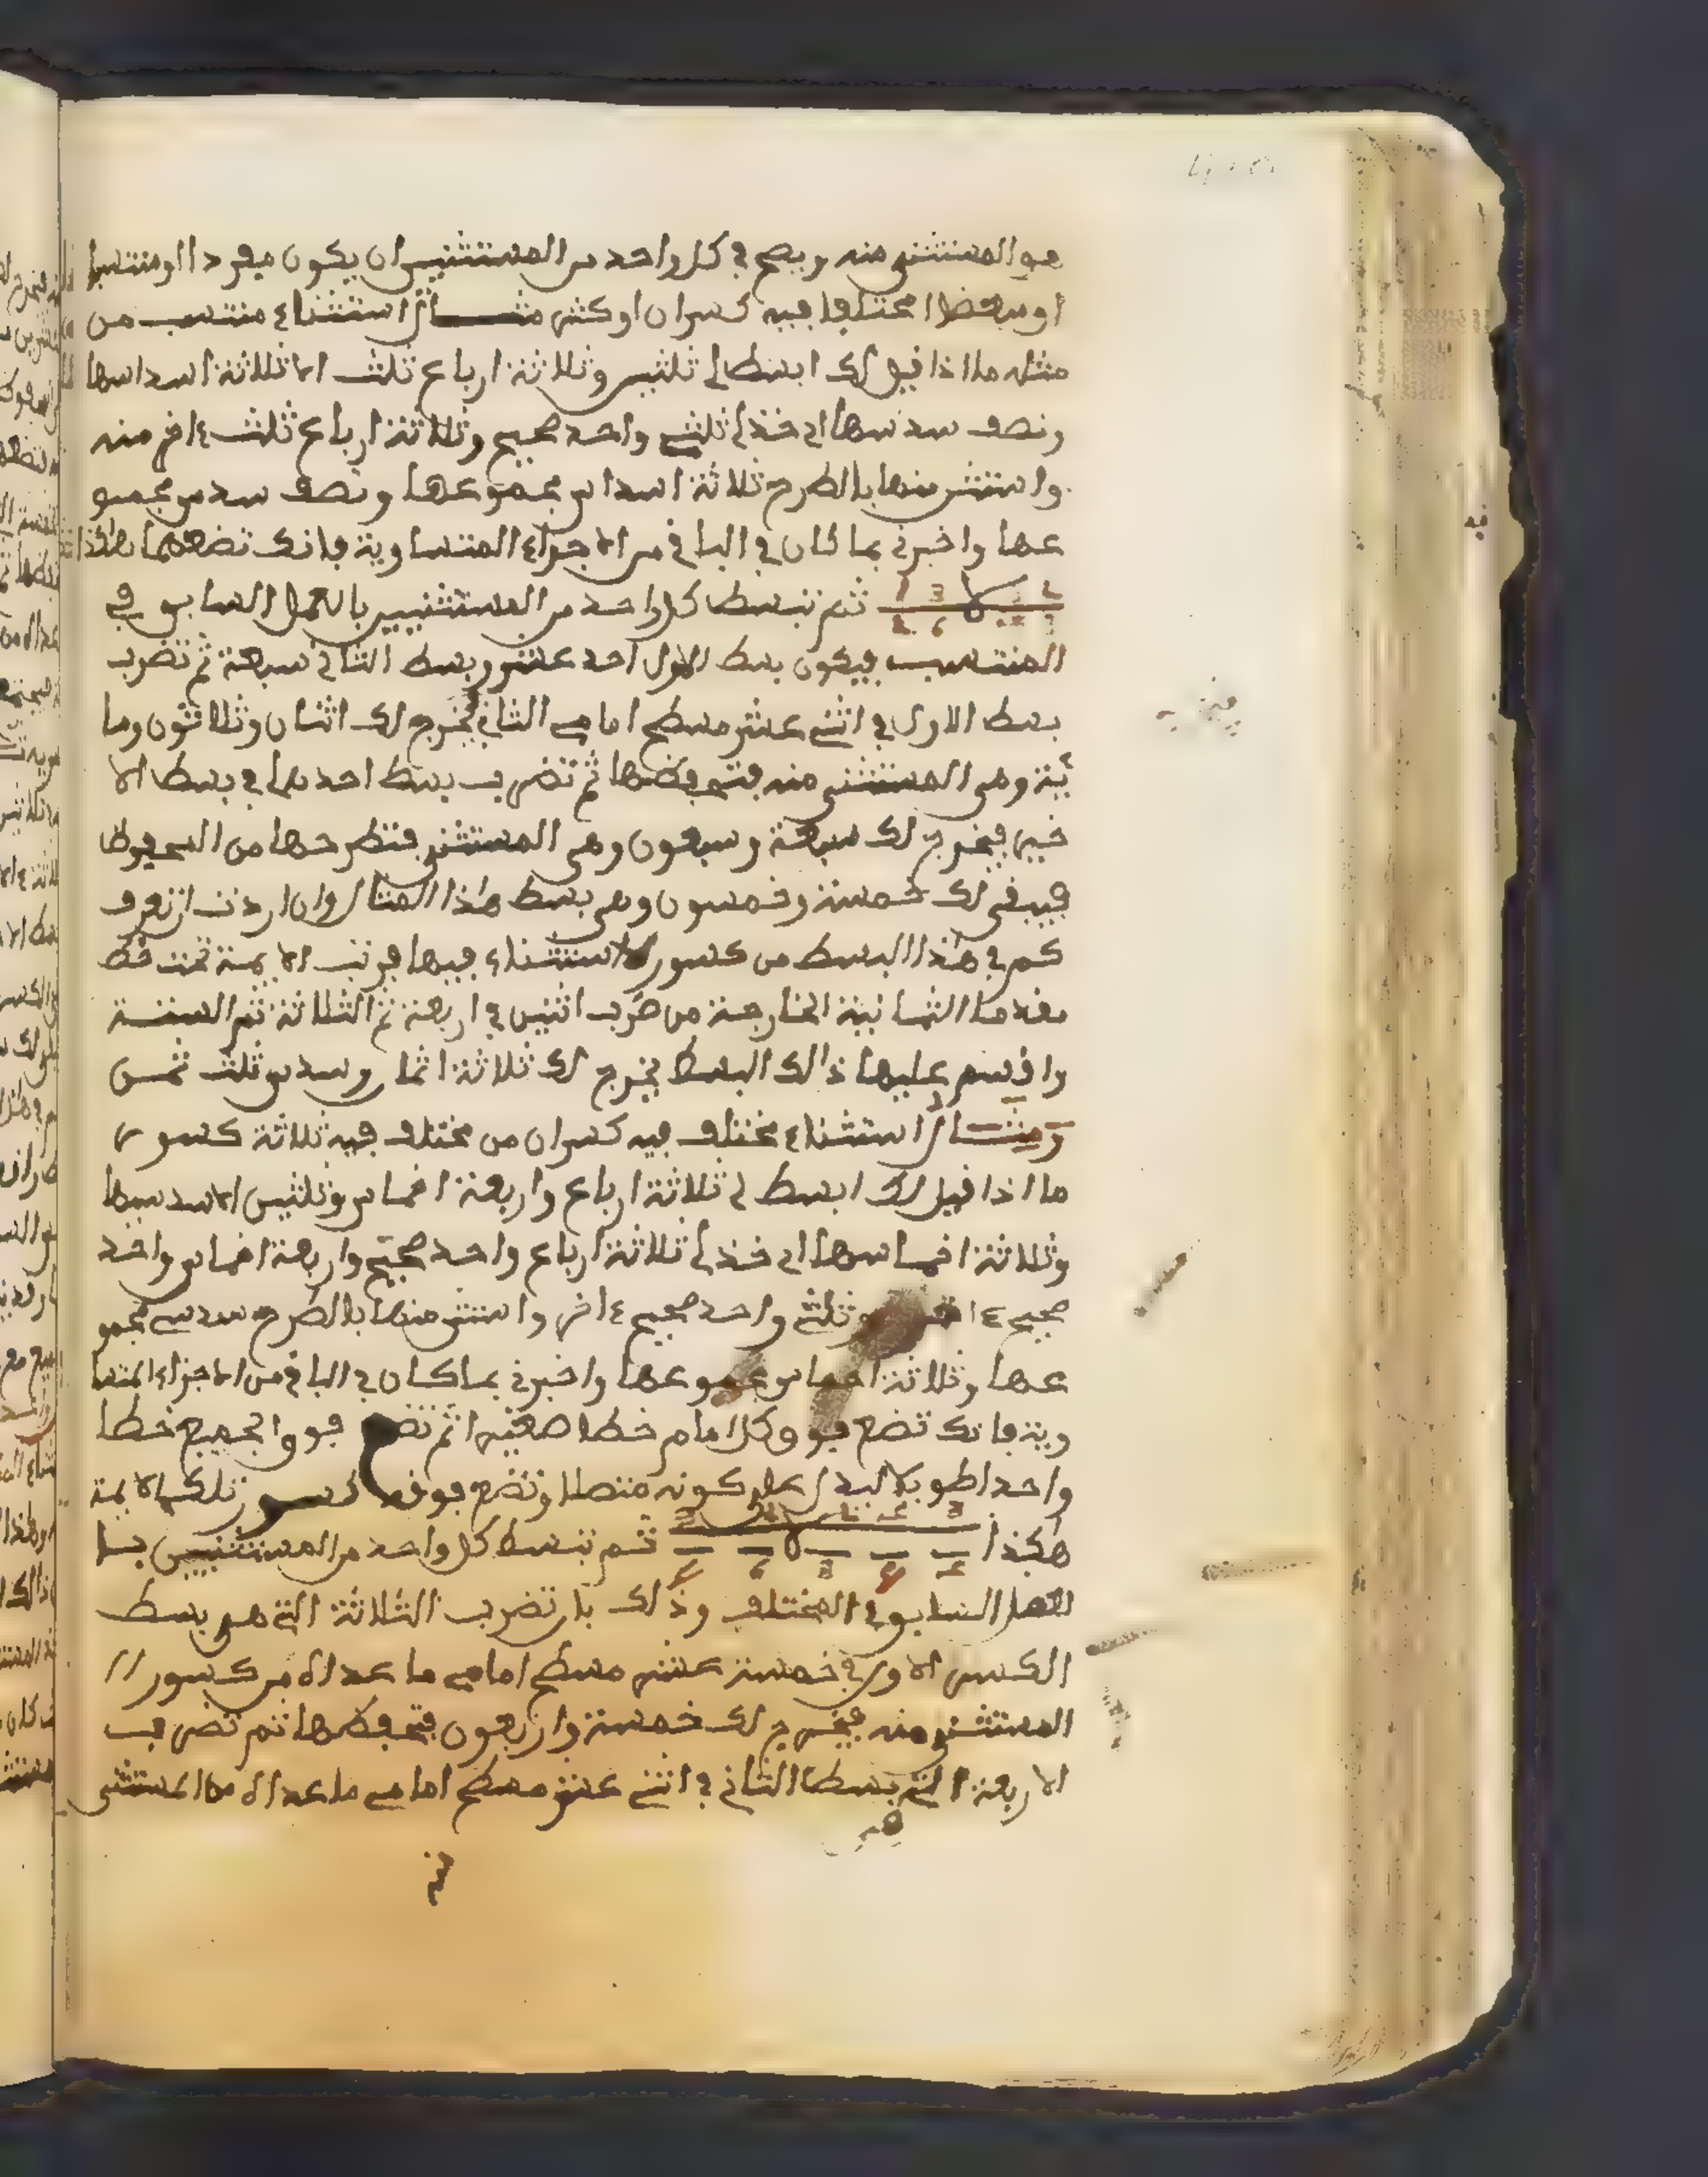 هو المستثنى منه ويصح في كل واحد من المستثنيين ان يكون مفردا او منتسبا
او مبعضا او مختلفا فيه كسران او كثر مثال استثناء منتسب من
مثله ما اذا قيل لك ابسط لي ثلثين وثلاثة ارباع ثلث الا ثلاثة اسداسها
ونصف سدسها اي خذ لي ثلثي واحد صحيح وثلاثة ارباع ثلث ءاخر منه
واستثن منها بالطرح ثلاثة اسداس مجموعها ونصف سدس مجمو
عها واخبرني بما كان في الباقي من الاجزاء المتساوية فانك تضعهما هكذا
ثم تبسط كل واحد من المستثنيين بالعمل السابق في
المنتسب فيكون بسط الاول احد عشر وبسط الثاني سبعة ثم تضرب
بسط الاول في اثني عشر مسطح امامي الثاني يخرج لك اثنان وثلاثون وما
ئة وهي المستثنى منه فتحفظها ثم تضرب بسط احدهما في بسط الا
خير فيخرج لك سبعة وسبعون وهي المستثنى فتطرحها من المحفوظ
فيبقى لك خمسة وخمسون وهي بسط هذا المثال وان اردت ان تعرف
كم في هذا البسط من كسور الاستثناء فيها فرتب الايمة تحت خط
مقدما الثمانية الخارجة من ضرب اثنين في اربعة ثم الثلاثة ثم الستة
واقسم عليها ذالك البسط يخرج لك ثلاثة اثمان وسدس ثلث ثمن
ومثال استثناء مختلف فيه كسران من مختلف فيه ثلاثة كسور
ما اذا قيل لك ابسط لي ثلاثة ارباع واربعة اخماس وثلثين الا سدسها
وثلاثة اخماسها اي خذ لي ثلاثة ارباع واحد صحيح واربعة اخماس واحد
صحيح ءاخر وثلثي واحد صحيح ءاخر واستثن منها بالطرح سدسي مجمو
عها وثلاثة اخماس مجموعها واخبرني بما كان في الباقي من الاجزاء المتسا
وية فانك تضع فوق كل امام خطا صغيرا ثم تضع فوق الجميع خطا
واحدا طويلا ليدل على كونه متصلا وتضع فوقه كسور تلك الايمة
هكذا ثم تبسط كل واحد من المستثنيين با
لعمل السابق في المختلف وذلك بان تضرب الثلاثة التي هي بسط
الكسر الاول في خمسة عشر مسطح امامي ما عداه من كسور
المستثنى منه فيخرج لك خمسة واربعون فتحفظها ثم تضرب
الاربعة التي بسط الثاني في اثني عشر مسطح امامي ما عداه من المستثنى